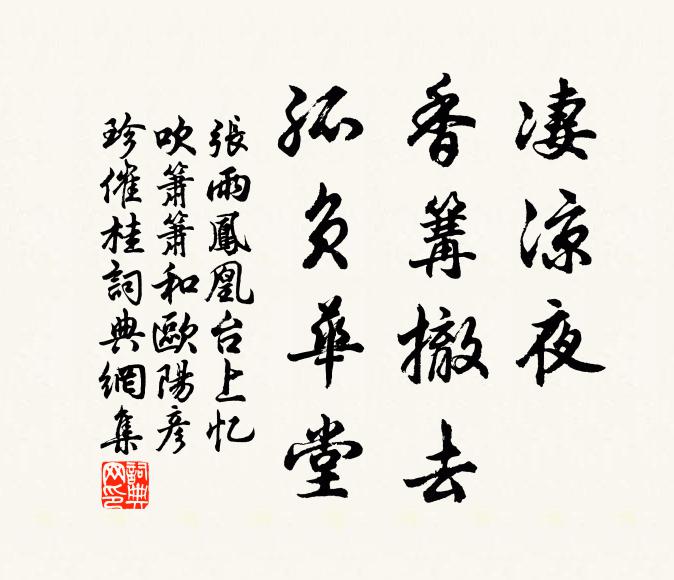 凄涼夜
香篝撤去
孤負華堂
張雨鳳凰台上忆
吹簫簫和歐陽彦
珍催桂詞典網集
詞典网印